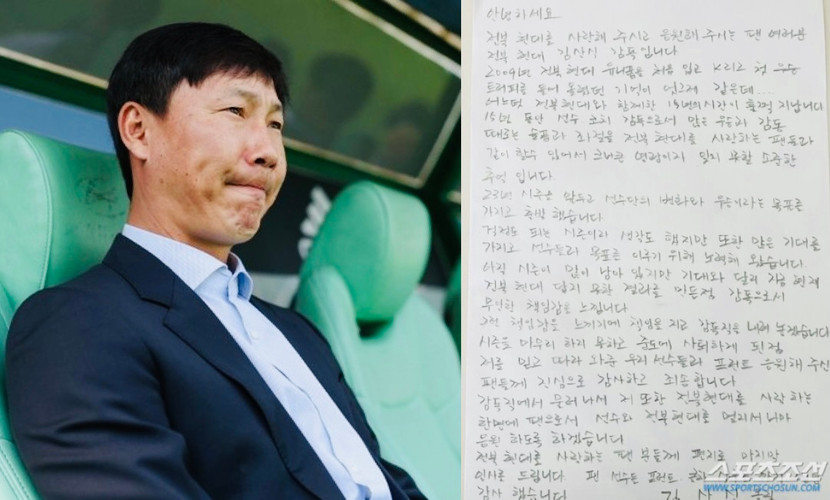 안녕하세요
전북 현대를 사랑해 주시고 응원해 주시는 팬 여러분
전북 현대 김상식 감독입니다
2009년 전북현대 유니폼을 처음 입고 K리그 첫 우승
트로피를 들어 올렸던 기억이 엊그제 같은데...
어느덧 전북현대와 함께한 15년의 시간이 훌쩍 지났습니다
15년 동안 선수 코치 감독으로서 많은 우승의 감동
때로는 슬픔과 좌절을 전북 현대를 사랑하는 팬들과
같이 할수 있어서 크나큰 영광이자 잊지 못할 소중한
추억 입니다
23년 시즌을 앞두고 선수단의 변화와 우승이라는 목표를
가지고 출발 했습니다
걱정도 되는 시즌이라 생각도 했지만 또한 많은 기대를
가지고 선수들과 목표를 이루기 위해 노력해 왔습니다
아직 시즌이 많이 남아 있지만 기대와 달리 지금 현재
전북현대 답지 못한 결과를 만든점 감독으로서
무한한 책임감을 느낍니다
그런 책임감을 느끼기에 책임을 지고 감독직을 내려 놓겠습니다
시즌을 마무리 하지 못하고 중도에 사퇴하게 된점
저를 믿고 따라 와준 우리 선수들과 프런트 응원해 주신
팬들께 진심으로 감사하고 죄송합니다
감독직에서 물러나서 저 또한 전북현대를 사랑 하는
한명에 팬으로서 선수와 전북현대를 멀리서 나마
응원 하도록 하겠습니다
전북 현대를 사랑하는 팬 분들께 편지로 마지막
인사를 드립니다 팬 선수들 프런트
감사 했습니다
스포츠조선
WWW.SPORTSCHOSUN.COM